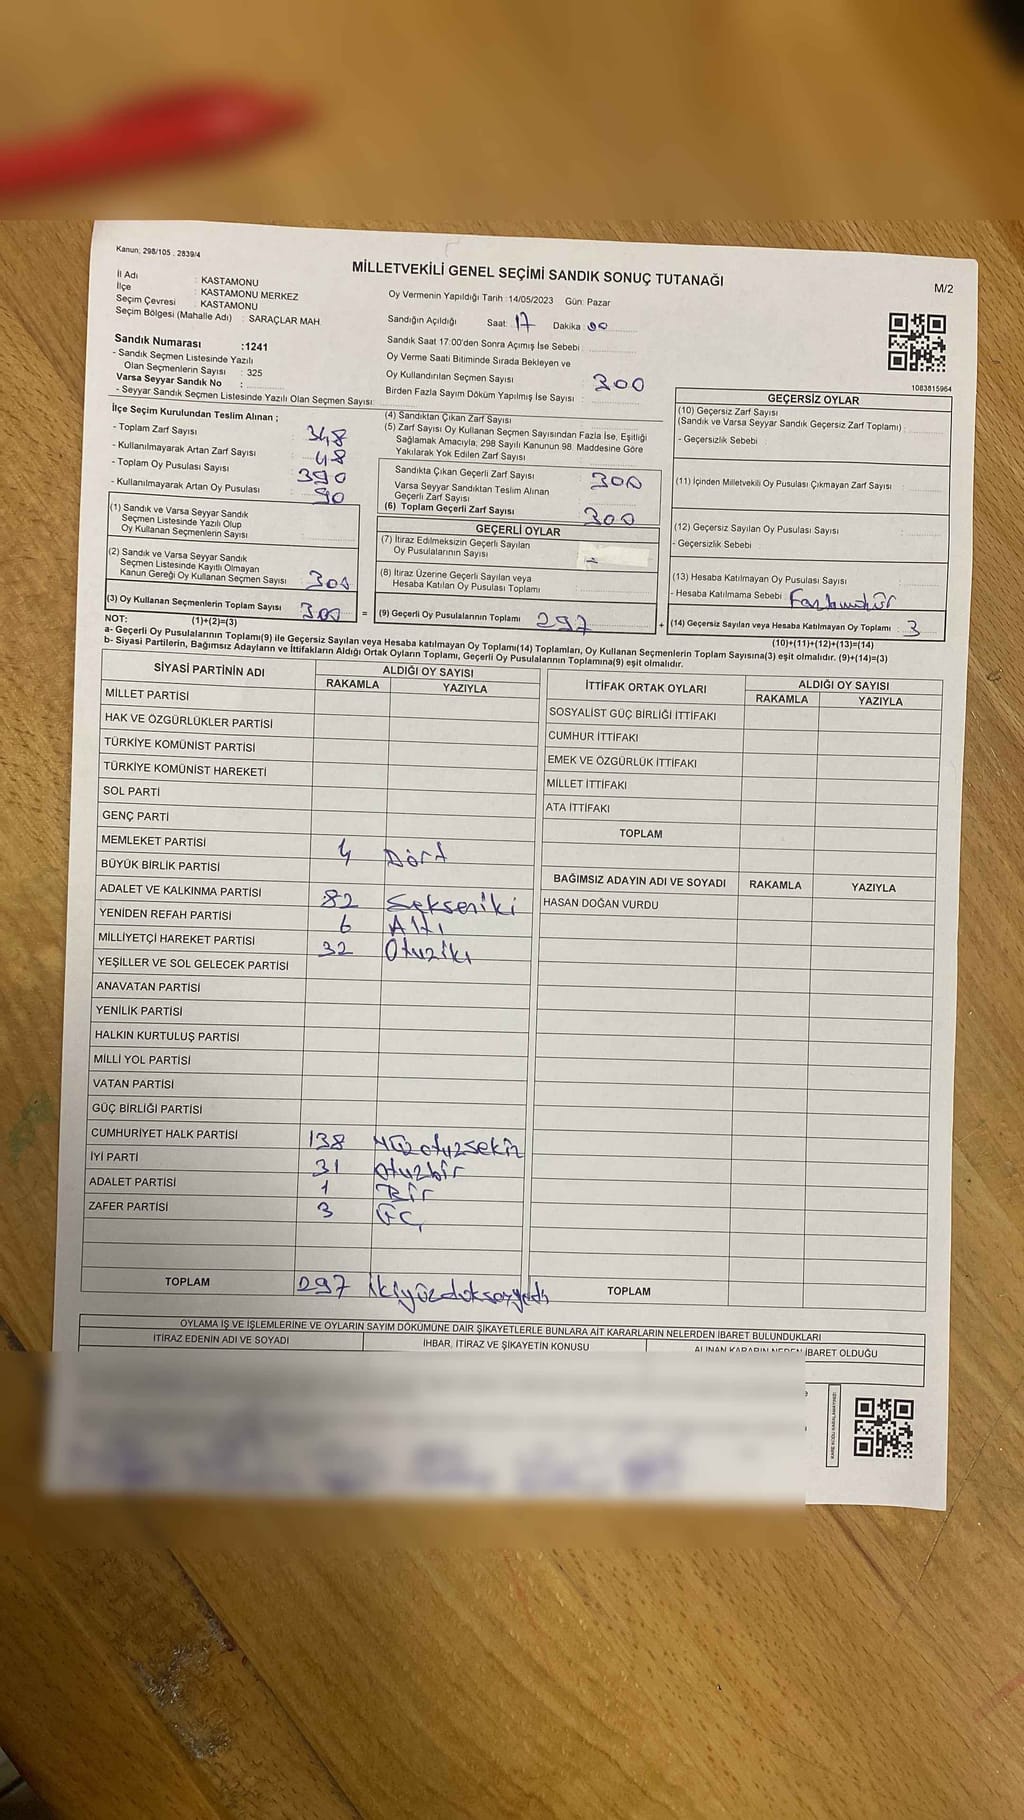 Kanun; 298/105 , 2839/4
MİLLETVEKİLİ GENEL SEÇİMİ SANDIK SONUÇ TUTANAĞI
M/2
İl Adı : KASTAMONU
İlçe : KASTAMONU MERKEZ
Seçim Çevresi : KASTAMONU
Seçim Bölgesi (Mahalle Adı) : SARAÇLAR MAH.
Sandık Numarası :1241
- Sandık Seçmen Listesinde Yazılı
Olan Seçmenlerin Sayısı : 325
Varsa Seyyar Sandık No :
- Seyyar Sandık Seçmen Listesinde Yazılı Olan Seçmen Sayısı:
Oy Vermenin Yapıldığı Tarih :14/05/2023 Gün: Pazar
Sandığın Açıldığı Saat: 17 Dakika: 00
Sandık Saat 17:00'den Sonra Açımış İse Sebebi :
Oy Verme Saati Bitiminde Sırada Bekleyen ve
Oy Kullandırılan Seçmen Sayısı : 300
Birden Fazla Sayım Döküm Yapılmış İse Sayısı :
1083815964
İlçe Seçim Kurulundan Teslim Alınan ;
- Toplam Zarf Sayısı : 348
- Kullanılmayarak Artan Zarf Sayısı : 48
- Toplam Oy Pusulası Sayısı : 390
- Kullanılmayarak Artan Oy Pusulası : 90
(1) Sandık ve Varsa Seyyar Sandık
Seçmen Listesinde Yazılı Olup
Oy Kullanan Seçmenlerin Sayısı :
(2) Sandık ve Varsa Seyyar Sandık
Seçmen Listesinde Kayıtlı Olmayan
Kanun Gereği Oy Kullanan Seçmen Sayısı : 300
(3) Oy Kullanan Seçmenlerin Toplam Sayısı : 300 =
(1)+(2)=(3)
(4) Sandıktan Çıkan Zarf Sayısı :
(5) Zarf Sayısı Oy Kullanan Seçmen Sayısından Fazla İse, Eşitliği
Sağlamak Amacıyla; 298 Sayılı Kanunun 98. Maddesine Göre
Yakılarak Yok Edilen Zarf Sayısı :
Sandıkta Çıkan Geçerli Zarf Sayısı : 300
Varsa Seyyar Sandıktan Teslim Alınan
Geçerli Zarf Sayısı :
(6) Toplam Geçerli Zarf Sayısı : 300
GEÇERLİ OYLAR
(7) İtiraz Edilmeksizin Geçerli Sayılan
Oy Pusulalarının Sayısı : =
(8) İtiraz Üzerine Geçerli Sayılan veya
Hesaba Katılan Oy Pusulası Toplamı :
(9) Geçerli Oy Pusulalarının Toplamı : 297 +
GEÇERSİZ OYLAR
(10) Geçersiz Zarf Sayısı
(Sandık ve Varsa Seyyar Sandık Geçersiz Zarf Toplamı) :
- Geçersizlik Sebebi :
(11) İçinden Milletvekili Oy Pusulası Çıkmayan Zarf Sayısı :
(12) Geçersiz Sayılan Oy Pusulası Sayısı :
- Geçersizlik Sebebi :
(13) Hesaba Katılmayan Oy Pusulası Sayısı :
- Hesaba Katılmama Sebebi :
(14) Geçersiz Sayılan veya Hesaba Katılmayan Oy Toplamı : 3
(10)+(11)+(12)+(13)=(14)
NOT:
a- Geçerli Oy Pusulalarının Toplamı(9) ile Geçersiz Sayılan veya Hesaba katılmayan Oy Toplamı(14) Toplamları, Oy Kullanan Seçmenlerin Toplam Sayısına(3) eşit olmalıdır. (9)+(14)=(3)
b- Siyasi Partilerin, Bağımsız Adayların ve İttifakların Aldığı Ortak Oyların Toplamı, Geçerli Oy Pusulalarının Toplamına(9) eşit olmalıdır.
SİYASİ PARTİNİN ADI ALDIĞI OY SAYISI
RAKAMLA YAZIYLA
MİLLET PARTİSİ
HAK VE ÖZGÜRLÜKLER PARTİSİ
TÜRKİYE KOMÜNİST PARTİSİ
TÜRKİYE KOMÜNİST HAREKETİ
SOL PARTİ
GENÇ PARTİ
MEMLEKET PARTİSİ 4 Dört
BÜYÜK BİRLİK PARTİSİ
ADALET VE KALKINMA PARTİSİ 82 Sekseniki
YENİDEN REFAH PARTİSİ 6 Altı
MİLLİYETÇİ HAREKET PARTİSİ 32 Otuziki
YEŞİLLER VE SOL GELECEK PARTİSİ
ANAVATAN PARTİSİ
YENİLİK PARTİSİ
HALKIN KURTULUŞ PARTİSİ
MİLLİ YOL PARTİSİ
VATAN PARTİSİ
GÜÇ BİRLİĞİ PARTİSİ
CUMHURİYET HALK PARTİSİ 138 Yüzotuzsekiz
İYİ PARTİ 31 otuzbir
ADALET PARTİSİ 1 Bir
ZAFER PARTİSİ 3 Üç
TOPLAM 297 İkiyüzdoksanyedi
İTTİFAK ORTAK OYLARI ALDIĞI OY SAYISI
RAKAMLA YAZIYLA
SOSYALİST GÜÇ BİRLİĞİ İTTİFAKI
CUMHUR İTTİFAKI
EMEK VE ÖZGÜRLÜK İTTİFAKI
MİLLET İTTİFAKI
ATA İTTİFAKI
TOPLAM
BAĞIMSIZ ADAYIN ADI VE SOYADI RAKAMLA YAZIYLA
HASAN DOĞAN VURDU
TOPLAM
OYLAMA İŞ VE İŞLEMLERİNE VE OYLARIN SAYIM DÖKÜMÜNE DAİR ŞİKAYETLERLE BUNLARA AİT KARARLARIN NELERDEN İBARET BULUNDUKLARI
İTİRAZ EDENİN ADI VE SOYADI İHBAR, İTİRAZ VE ŞİKAYETİN KONUSU ALINAN KARARIN NEDEN İBARET OLDUĞU